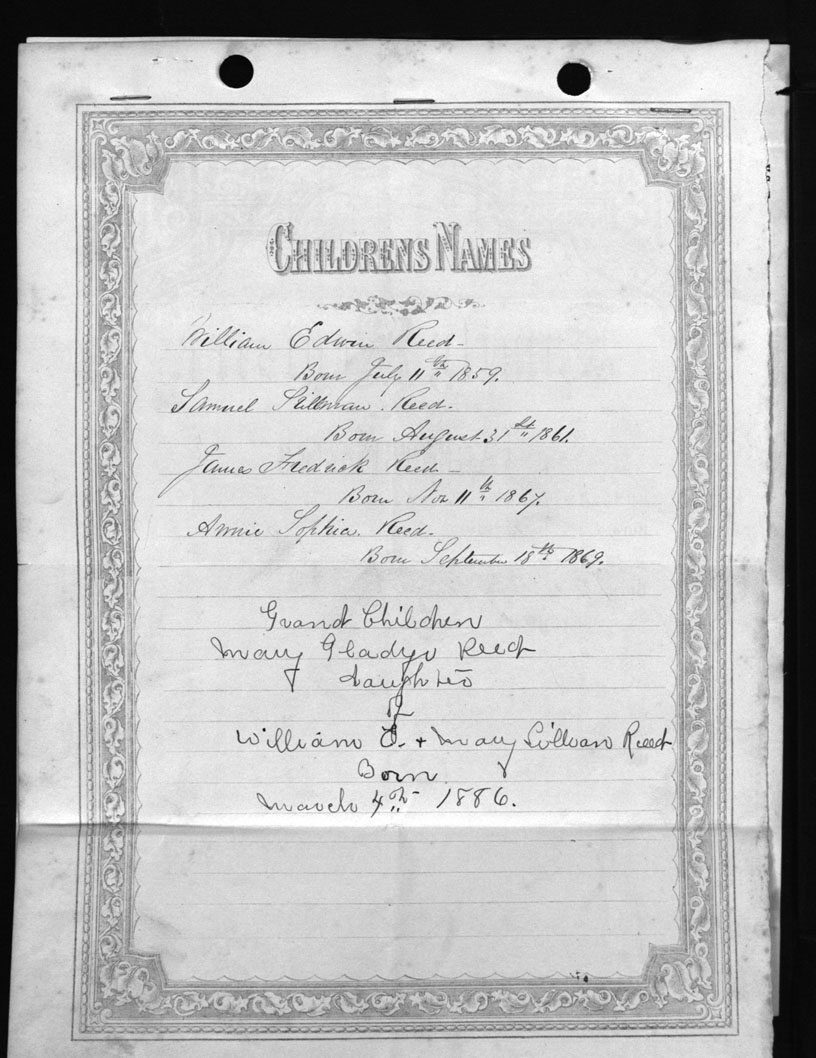 CHILDRENS NAMES
William Edwin Reed -
Born July 11th 1859.
Samuel Stillman. Reed.
Born August 31st 1861.
James Fredrick Reed -
Born Nov 11th 1867.
Annie Sophia. Reed.
Born September 18th 1869.
Grand Children
Mary Gladys Reed
daughter
of
William E. + Mary Reed
Born
March 4th 1886.